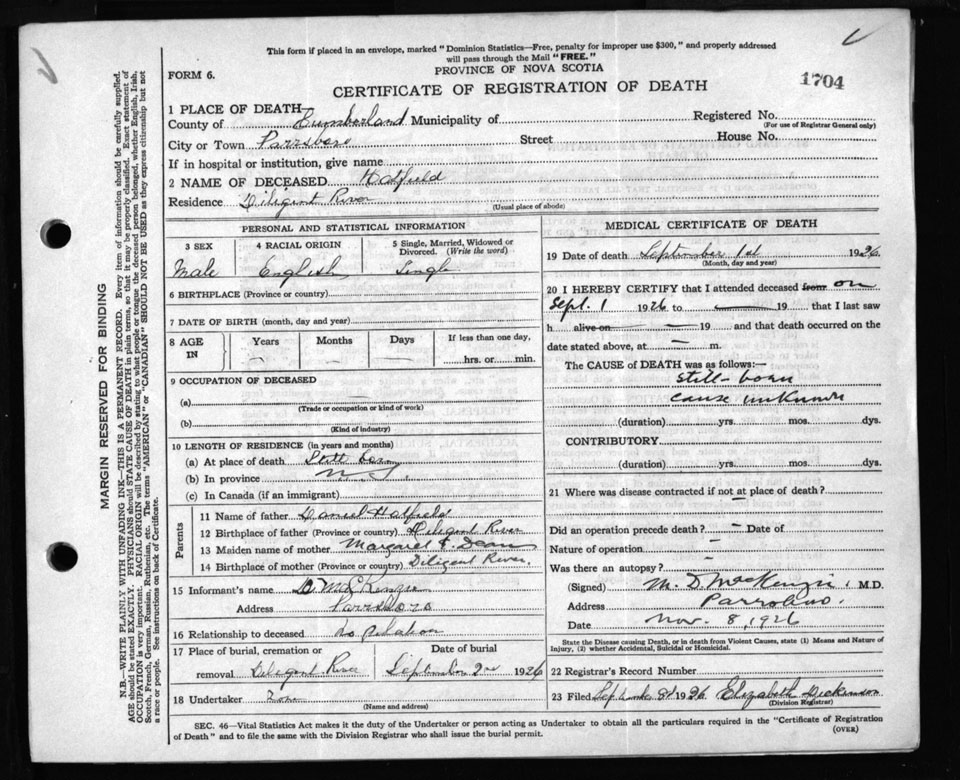 This form if placed in an envelope, marked "Dominion Statistics—Free, penalty for improper use $300," and properly addressed
will pass through the Mail "FREE."
FORM 6.
PROVINCE OF NOVA SCOTIA
CERTIFICATE OF REGISTRATION OF DEATH
1704
1 PLACE OF DEATH—
County of Cumberland Municipality of
Registered No.
(For use of Registrar General only)
City or Town Parrsboro Street House No.
If in hospital or institution, give name
2 NAME OF DECEASED Hatfield
Residence Diligent River
(Usual place of abode)
PERSONAL AND STATISTICAL INFORMATION
3 SEX 4 RACIAL ORIGIN 5 Single, Married, Widowed or Divorced. (Write the word)
Male English Single
6 BIRTHPLACE (Province or country)
7 DATE OF BIRTH (month, day and year)
8 AGE IN Years Months Days If less than one day,
hrs. or min.
9 OCCUPATION OF DECEASED
(a)
(Trade or occupation or kind of work)
(b)
(Kind of industry)
10 LENGTH OF RESIDENCE (in years and months)
(a) At place of death Still born
(b) In province N.S.
(c) In Canada (if an immigrant)
Parents
11 Name of father Daniel Hatfield
12 Birthplace of father (Province or country) Diligent River
13 Maiden name of mother Margaret
14 Birthplace of mother (Province or country) Diligent River.
15 Informant's name MacKenzie
Address Parrsboro
16 Relationship to deceased No Relation
17 Place of burial, cremation or removal Diligent River
Date of burial September 2nd 1926
18 Undertaker
(Name and address)
MEDICAL CERTIFICATE OF DEATH
19 Date of death September 1st 1926
(Month, day and year)
20 I HEREBY CERTIFY that I attended deceased from on
Sept. 1 1926 to — 19 — that I last saw
h alive on — 19 and that death occurred on the
date stated above, at — m.
The CAUSE OF DEATH was as follows:—
Still-born
cause unknown
(duration) yrs. mos. dys.
CONTRIBUTORY
(duration) yrs. mos. dys.
21 Where was disease contracted if not at place of death?
Did an operation precede death? — Date of
Nature of operation —
Was there an autopsy? —
(Signed) M. D. MacKenzie, M.D.
Address Parrsboro.
Date Nov. 8, 1926
State the Disease causing Death, or in death from Violent Causes, state (1) Means and Nature of
Injury, (2) whether Accidental, Suicidal or Homicidal.
22 Registrar's Record Number
23 Filed September 8th 1926 Elizabeth Dickinson
(Division Registrar)
SEC. 46—Vital Statistics Act makes it the duty of the Undertaker or person acting as Undertaker to obtain all the particulars required in the "Certificate of Registration
of Death" and to file the same with the Division Registrar who shall issue the burial permit.
(OVER)
MARGIN RESERVED FOR BINDING
N.B.—WRITE PLAINLY WITH UNFADING INK—THIS IS A PERMANENT RECORD. Every item of information should be carefully supplied.
AGE should be stated EXACTLY. PHYSICIANS should STATE CAUSE OF DEATH in plain terms, so that it may be properly classified. Exact statement of
OCCUPATION is very important. RACIAL ORIGIN will be described by stating to what people or tongue the deceased person belonged, whether English, Irish,
Scotch, French, German, Russian, Ruthenian, etc. The terms "AMERICAN" or "CANADIAN" SHOULD NOT BE USED as they express citizenship but not
a race or people. See instructions on back of Certificate.